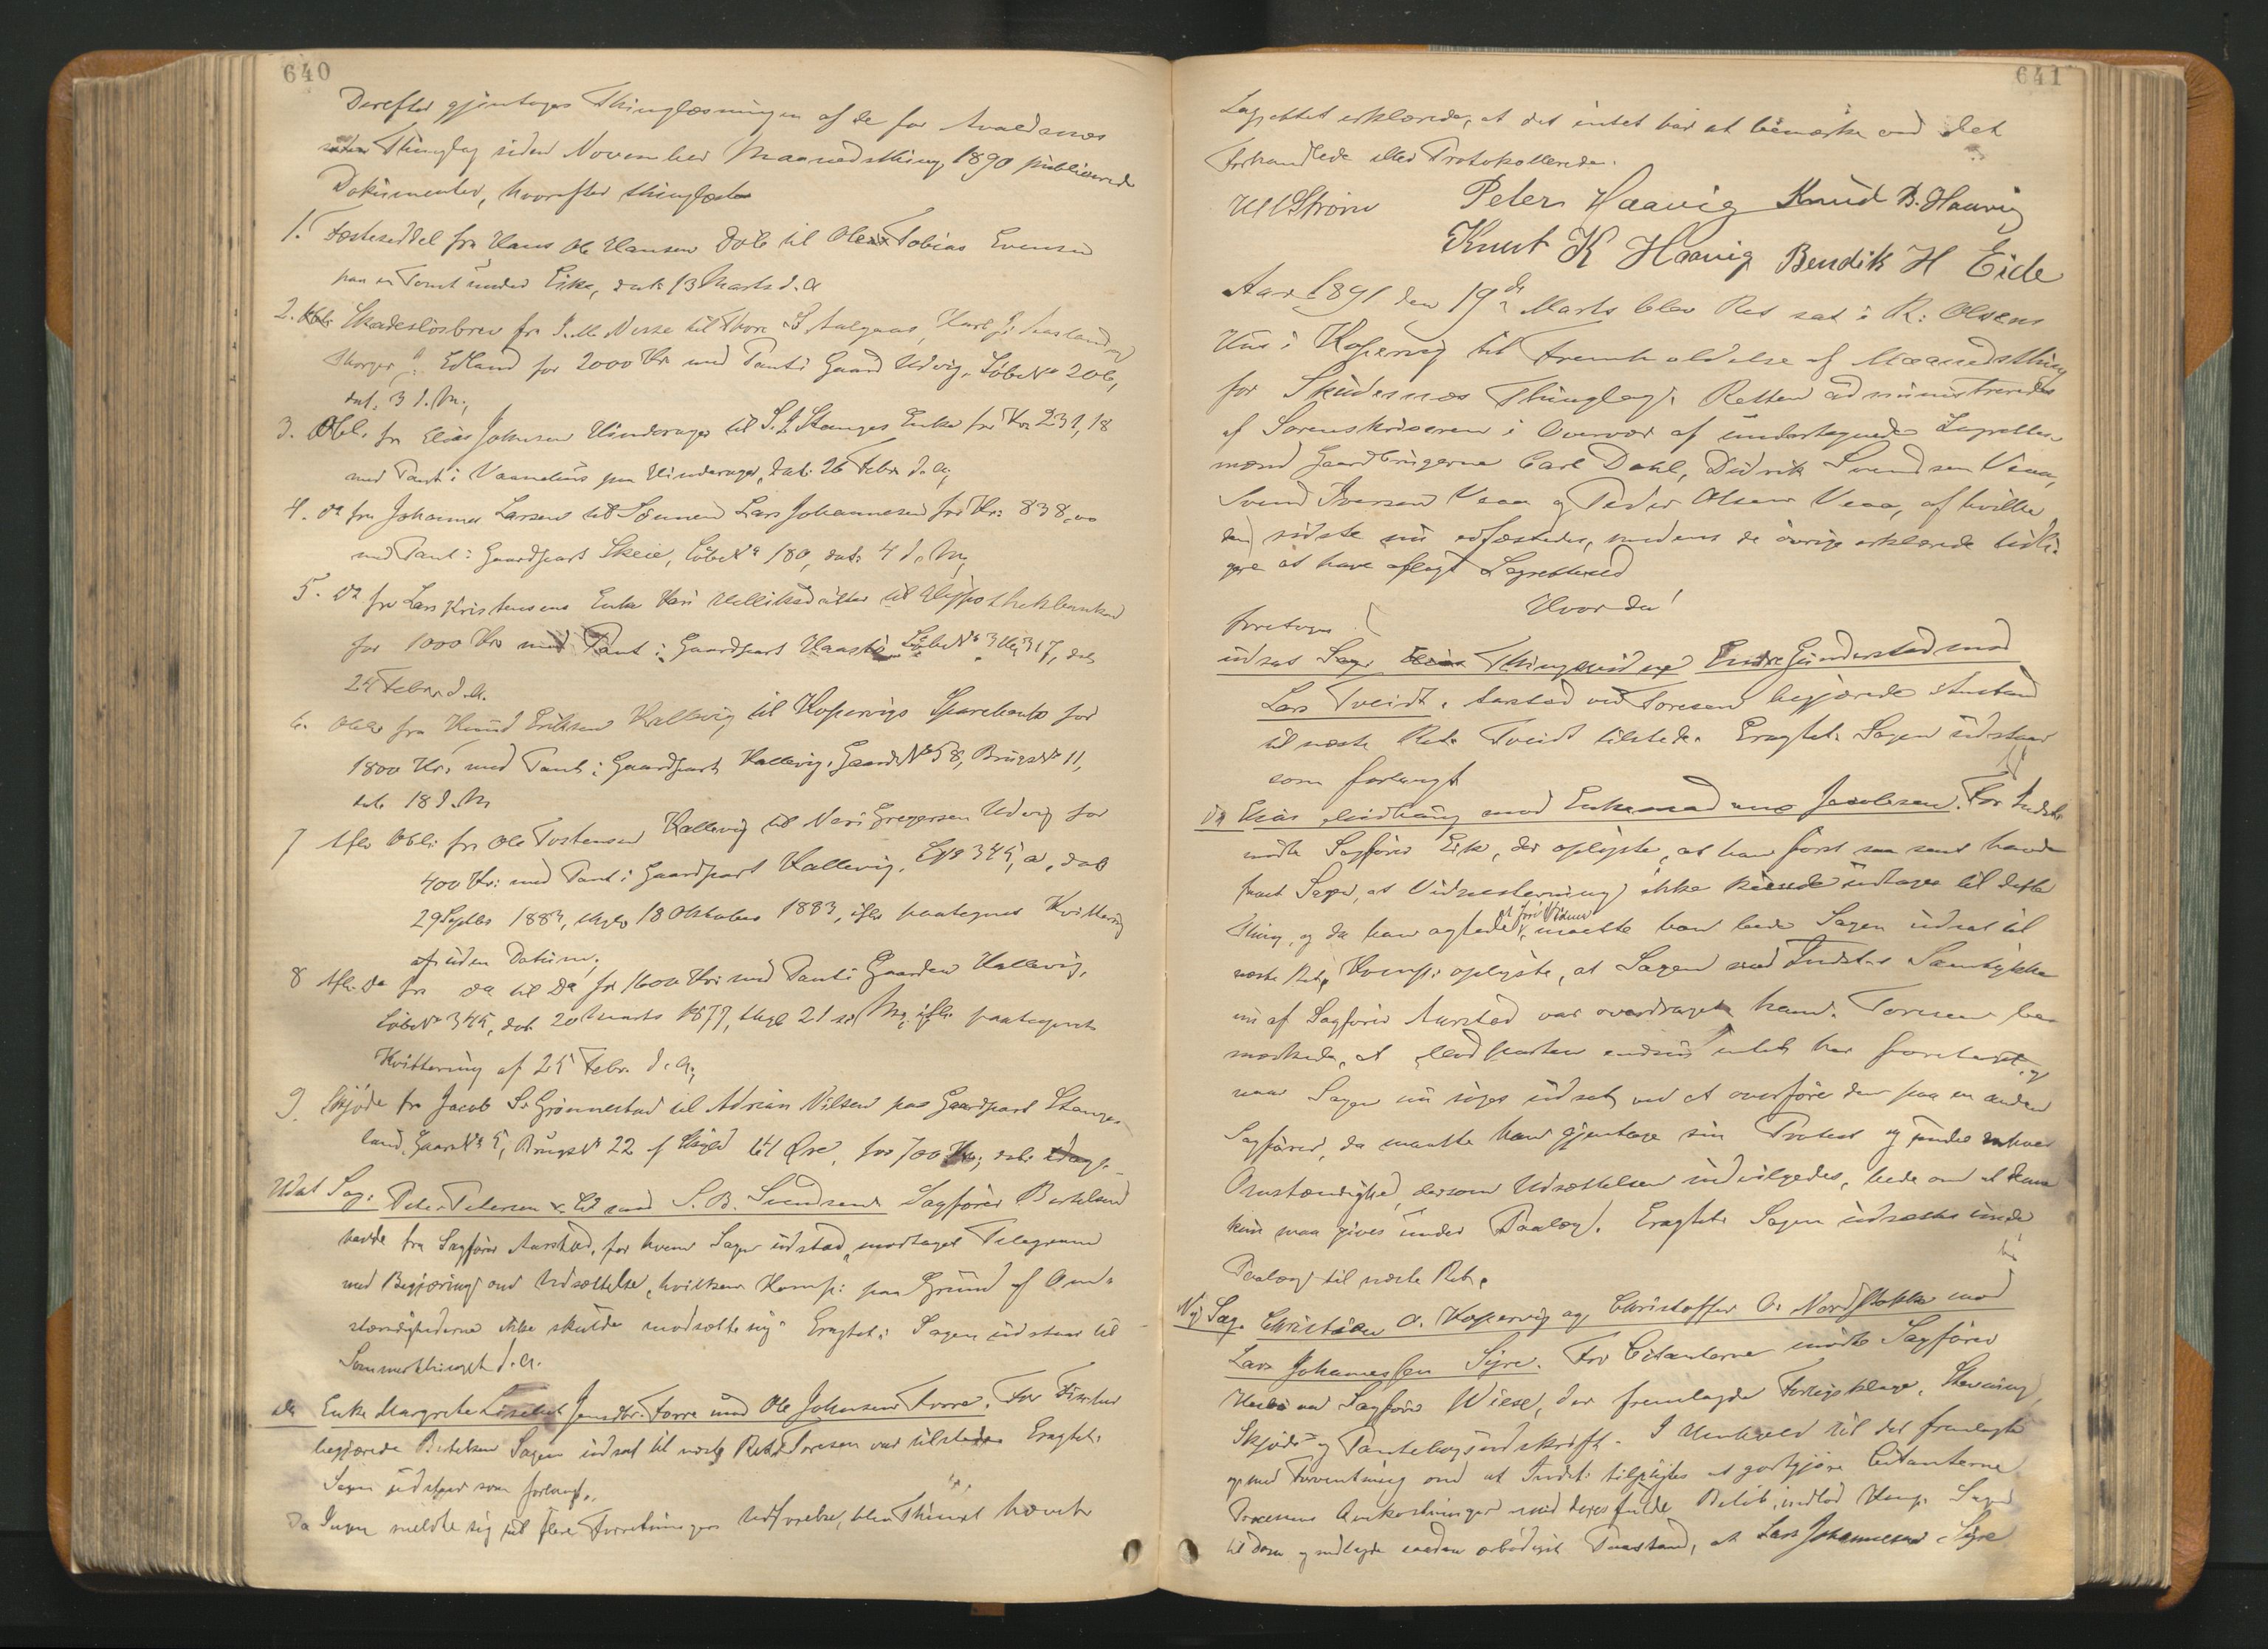 640
Derefter gjentoges Thinglæsningen af de for Avaldsnæs
Thinglag siden November Maanedsthing 1890 publicerede
Dokumenter, hvorefter thinglæstes
1. Fæsteseddel fra Hans Ole Hansen Dale til Ole Tobias Evensen
paa en Tomt under Eike, dat: 13 Marts d. A
2. Skadesløsbrev fra I. M. Nesse til Thore S Aalgaas, Karl J. Aasland og
Edland for 2000 Kr med Pant i Gaard Udvig, Løbe No 206,
dat: 3 d. M.;
3. Obl. fra Elias Johnsen Hinderager til S. J. Stanges Enke for Kr 231,18
med Pant i Vaanehus paa Hinderager, dat: 26 Febr d. A;
4. do fra Johannes Larsen til Sønnen Lars Johannesen for Kr: 838,00
med Pant i Gaardpart Skeie, Løbe No 180, dat: 4 d. M;
5. do fra Lars Kristensens Enke Kari til Hypothekbanken
for 1000 Kr med Pant i Gaardpart Løbe No 317, dat
24 Febr. d. A.
6. Obl: fra Knud Eriksen Kallevig til Kopervigs Sparebank for
1800 Kr: med Pant i Gaardpart Kallevig, Gaards No 58, Brugs No 11,
dat 18 d. M
7 Afl. Obl: fra Ole Tostensen Kallevig til Gregersen Udvig for
400 Kr: med Pant i Gaardpart Kallevig, 345, a, dat
29 Septbr 1883, thgl. 18 Oktober 1883, ifl. paategnet Kvittering
uden Datum;
8 Afl. do fra do til Do for 1600 Kr: med Pant i Gaarden Kallevig,
Løbe No 345, dat. 20 Marts 1877, thgl 21 s. M; ifl. paategnet
Kvittering af 25 Febr. d. A;
9. Skjøde fra Jacob S. Grønnestad til Adrian Nilsen paa Gaardpart Stange-
land, Gaards No 5, Brugs No 22 af Skyld 61 Øre, for 700 Kr; dat: idag.-
Udsat Sag: Peter Petersen mod S. B. Svendsen. Sagfører Bertelsen
havde fra Sagfører Aarstad, for hvem Sagen udstod, modtaget Telegram
med Begjæring om Udsættelse, hvilken Komp: paa Grund af Om-
stændighederne ikke skulde modsætte sig. Eragtet: Sagen udstaar til
Sommerthinget d. A.
do Enke Margrete Lisebet Jensdtr. Førre mod Ole Johnsen Førre. For
begjærede Bertelsen Sagen udsat til næste Ret. Toresen var tilstede. Eragtet:
Sagen udstaar som forlangt.
Da Ingen meldte sig til flere Forretningers Udførelse, blev Thinget hævet
641
Lagrettet erklærede, at det intet har at bemærke ved det
Forhandlede eller Protokollerede.
Strøm Peder Haavig Knud B. Haavig
Knut K Haavig Bendik H Eide
Aar 1891 den 19de Marts blev Ret sat i R: Olsens
Hus i Kopervig til Fremholdelse af Maanedsthing
for Skudenæs Thinglag. Retten administreredes
af Sorenskriveren i Overvær af undertegnede Lagrettes-
mænd Gaardbrugerne Carl Dahl, Didrik Svendsen Veaa,
Svend Iversen Veaa og Peder Olsen Veaa, af hvilke
den sidste nu edfæstedes, medens de øvrige erklærede tidli-
gere at have aflagt Lagretteed
Hvor da!
foretoges
udsat Sag: Thingvidne Endre Gunderstad mod
Lars Tveidt. Aarstad ved Toresen begjærede Anstand
til næste Ret. Tveidt tilstede. Eragtet: Sagen udstaar
som forlangt
do Elias Midhaug mod Enkemadame Jacobsen. For Indst:
mødte Sagfører Eik, der oplyste, at han først saa sent havde
faaet Sagen, at Vidnestevning ikke kunde udtages til dette
Thing, og da han agtede at føre Vidner, maatte han bede Sagen udsat til
næste Ret. Komp: oplyste, at Sagen med Indst:s Samtykke
nu af Sagfører Aarstad var overdraget ham. Toresen be-
mærkede, at Modparten endnu intet har foretaget, og
naar Sagen nu søges udsat ved at overføre den paa en anden
Sagfører, da maatte han gjentage sin Protest og under enhver
Omstændighed, dersom Udsættelsen indvilgedes, bede om at denne
kun maa gives under Paalæg. Eragtet: Sagen udsættes under
Paalæg til næste Ret.
Ny Sag. Christian O. Kopervig og Christoffer O. Nordstokke mod
Lars Johannessen Syre. For Citanterne mødte Sagfører
ved Sagfører Wiese, der fremlagde Forligsklage, Stevning,
Skjøde og Pantebogsudskrift. I Henhold til det fremlagte
og med Forventning om at Indst: tilpligtes at godtgjøre Citanterne
Processens Omkostninger med deres fulde Beløb, indlod Komp: Sagen
til Doms og nedlagde saadan ærbødigst Paastand, at Lars Johannessen Syre